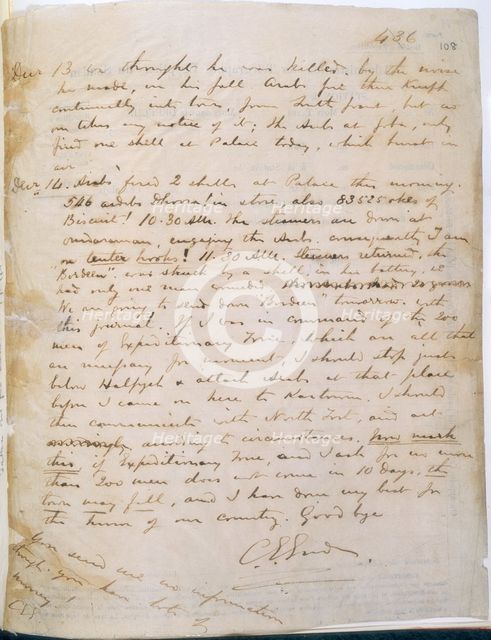 436
108
Decr 13 we thought he was killed. by the noise
he made, in his fall Arabs fire their Krupp
continually into town, from South front, but no
one takes any notice of it; The Arabs at Goba, only
fired one shell at Palace today, which burst in
air
Decr 14. Arabs fired 2 shells at Palace this morning.
546 ardebs Dhoora in store, also 83525 okes of
Biscuit! 10.30 AM. The steamers are down at
Omdurman, engaging the Arabs. consequently I am
on tenter hooks! 11.30 AM. Steamers returned, the
"Bordeen" was struck by a shell, in her battery, we
had only one man wounded
We are going to send down "Bordeen" tomorrow. with
this journal. If I was in command of the 200
men of Expeditionary Force, which are all that
are necessary for moment, I should stop just
below Halfyeh & attack Arabs at that place
before I came on here to Kartoum. I should
then communicate with North Fort, and act
according to circumstances. Now mark
this if Expeditionary Force, and I ask for no more
than 200 men does not come in 10 days, the
town may fall, and I have done my best for
the honor of our country. Good bye
C. G. Gordon
You send me no information
though you have lots of
money
CGG
Heritage
Heritage
Heritage
Heritage
Heritage
Heritage